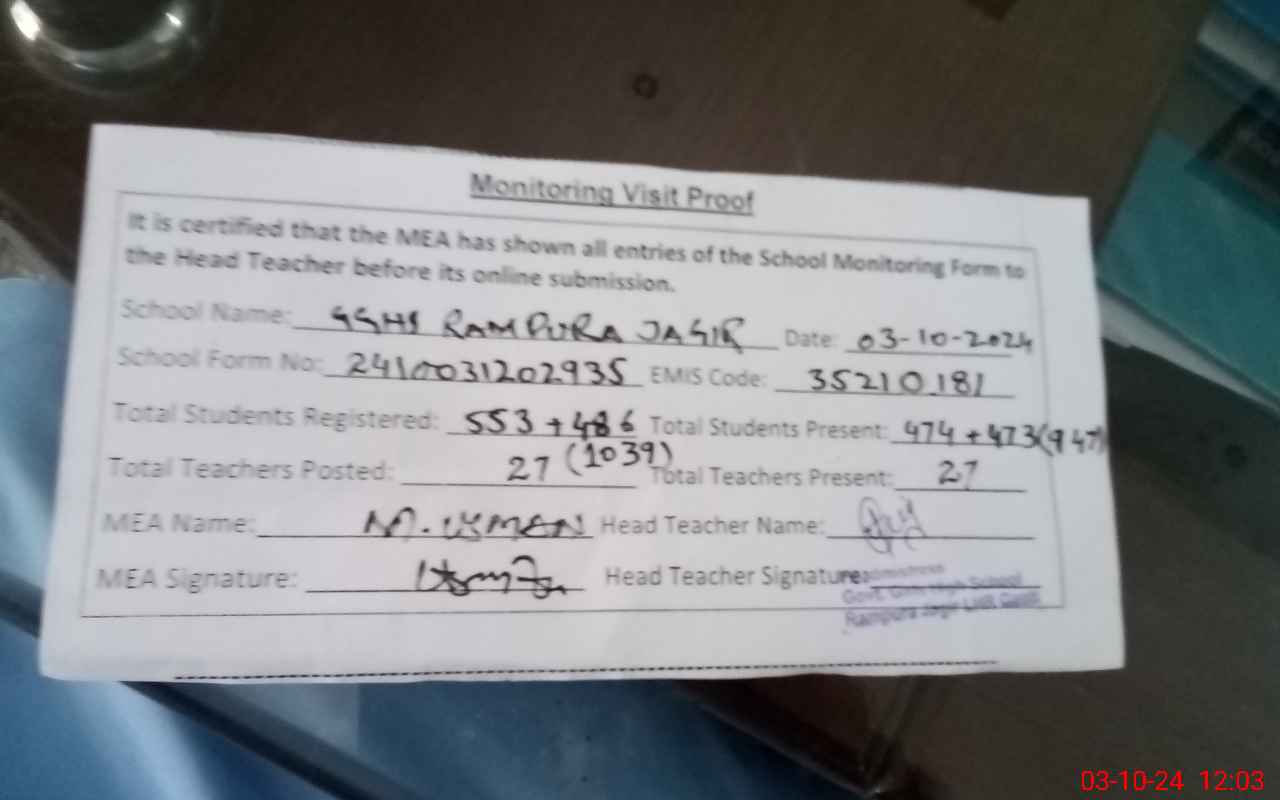 Monitoring Visit Proof
It is certified that the MEA has shown all entries of the School Monitoring Form to
the Head Teacher before its online submission.
School Name: GGHS RAMPURA JAGIR Date: 03-10-2024
School Form No: 2410031202935 EMIS Code: 35210181
Total Students Registered: 553 + 486 (1039) Total Students Present: 474 + 473 (947)
Total Teachers Posted: 27 Total Teachers Present: 27
MEA Name: M. USMAN Head Teacher Name:
MEA Signature: Head Teacher Signature:
Govt. Girls High School
Rampura Jagir
03-10-24 12:03